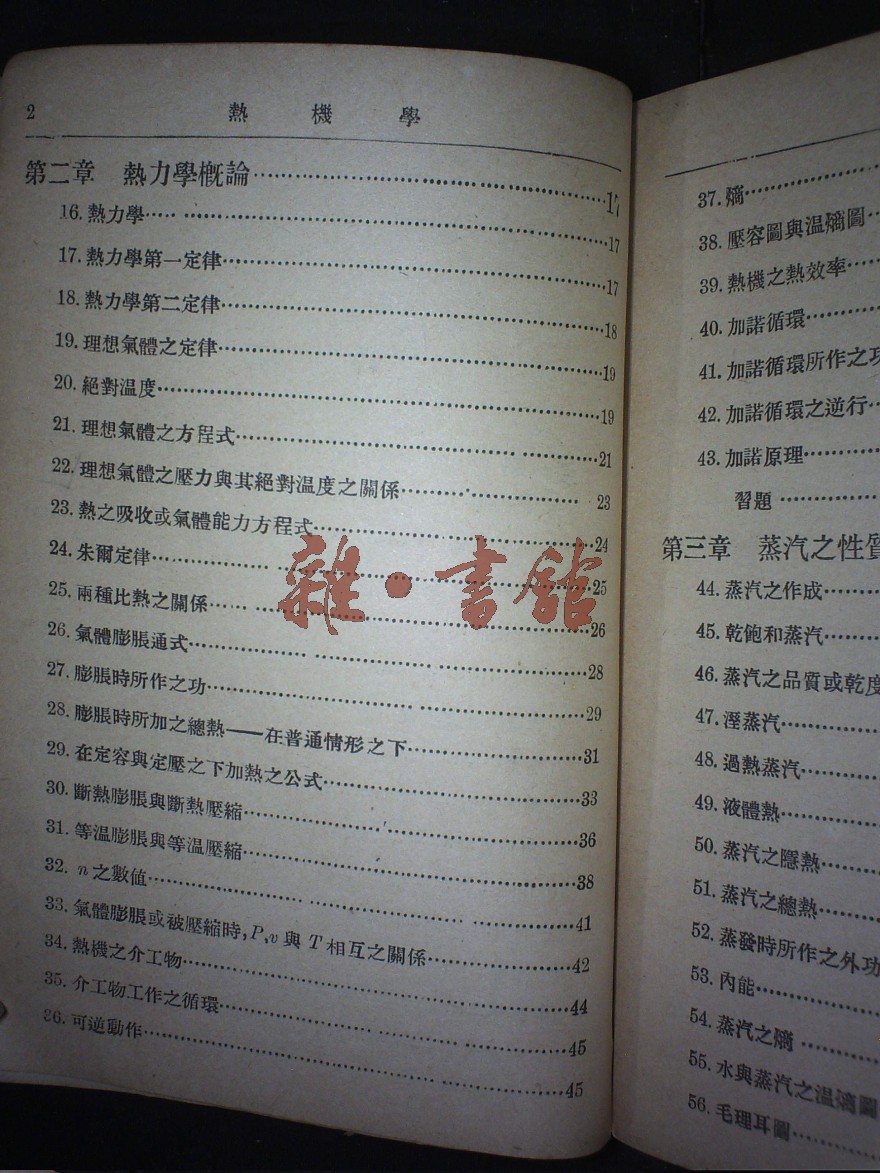 2 熱機學
第二章 熱力學概論 17
16. 熱力學 17
17. 熱力學第一定律 17
18. 熱力學第二定律 18
19. 理想氣體之定律 19
20. 絕對温度 19
21. 理想氣體之方程式 21
22. 理想氣體之壓力與其絕對温度之關係 23
23. 熱之吸收或氣體能力方程式 24
24. 朱爾定律 25
25. 兩種比熱之關係 26
26. 氣體膨脹通式 28
27. 膨脹時所作之功 29
28. 膨脹時所加之總熱——在普通情形之下 31
29. 在定容與定壓之下加熱之公式 33
30. 斷熱膨脹與斷熱壓縮 36
31. 等温膨脹與等温壓縮 38
32. n之數値 41
33. 氣體膨脹或被壓縮時,P,v與T相互之關係 42
34. 熱機之介工物 44
35. 介工物工作之循環 45
36. 可逆動作 45
雜·書館
37. 熵
38. 壓容圖與温熵圖
39. 熱機之熱效率
40. 加諾循環
41. 加諾循環所作之功
42. 加諾循環之逆行
43. 加諾原理
習題
第三章 蒸汽之性質
44. 蒸汽之作成
45. 乾飽和蒸汽
46. 蒸汽之品質或乾度
47. 溼蒸汽
48. 過熱蒸汽
49. 液體熱
50. 蒸汽之隱熱
51. 蒸汽之總熱
52. 蒸發時所作之外功
53. 內能
54. 蒸汽之熵
55. 水與蒸汽之温熵圖
56. 毛理耳圖